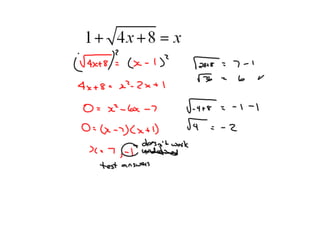 1 + √4x + 8 = x
(√4x+8)² = (x - 1)²
4x+8 = x² - 2x + 1
0 = x² - 6x - 7
0 = (x - 7)(x + 1)
x = 7, -1 doesn't work
test answers
√28+8 = 7 - 1
√36 = 6 ✓
√-4+8 = -1 - 1
√4 = -2